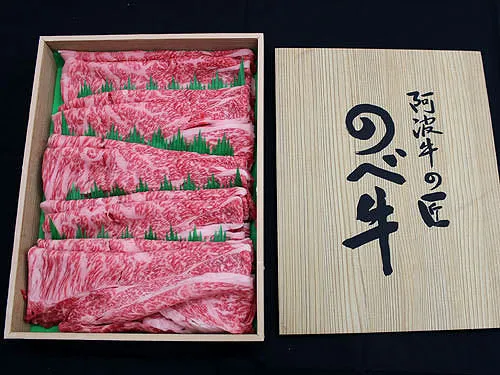 阿波牛の匠
のべ牛